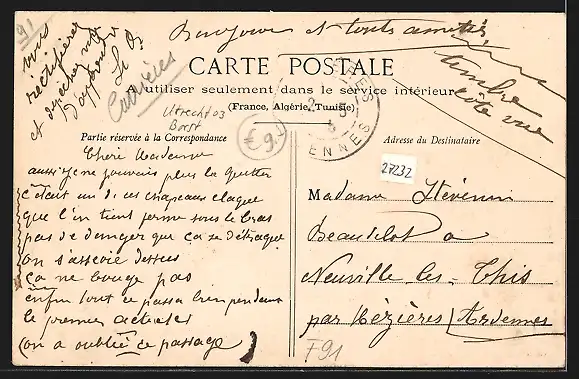 91
vous
rectifierez
et
Bonjour et touts amitiés
timbre
côté vue
CARTE POSTALE
A utiliser seulement dans le service intérieur
(France, Algérie, Tunisie)
Carrières
Utrecht 03
Borst
€9.-
ENNES
Partie réservée à la Correspondance
Adresse du Destinataire
27232
Chère Madame
aussi je ne pouvais plus la quitter
c'était un de ces chapeaux claque
que l'on tient ferme sous le bras
pas de danger que ça se détraque
on s'assoie dessus
ça ne bouge pas
enfin tout ce passa bien pendant
le premier acte
(on a oublié ce passage)
Madame Stévenin
Beaudelot a
Neuville les - This
par Mézières (Ardennes
F91